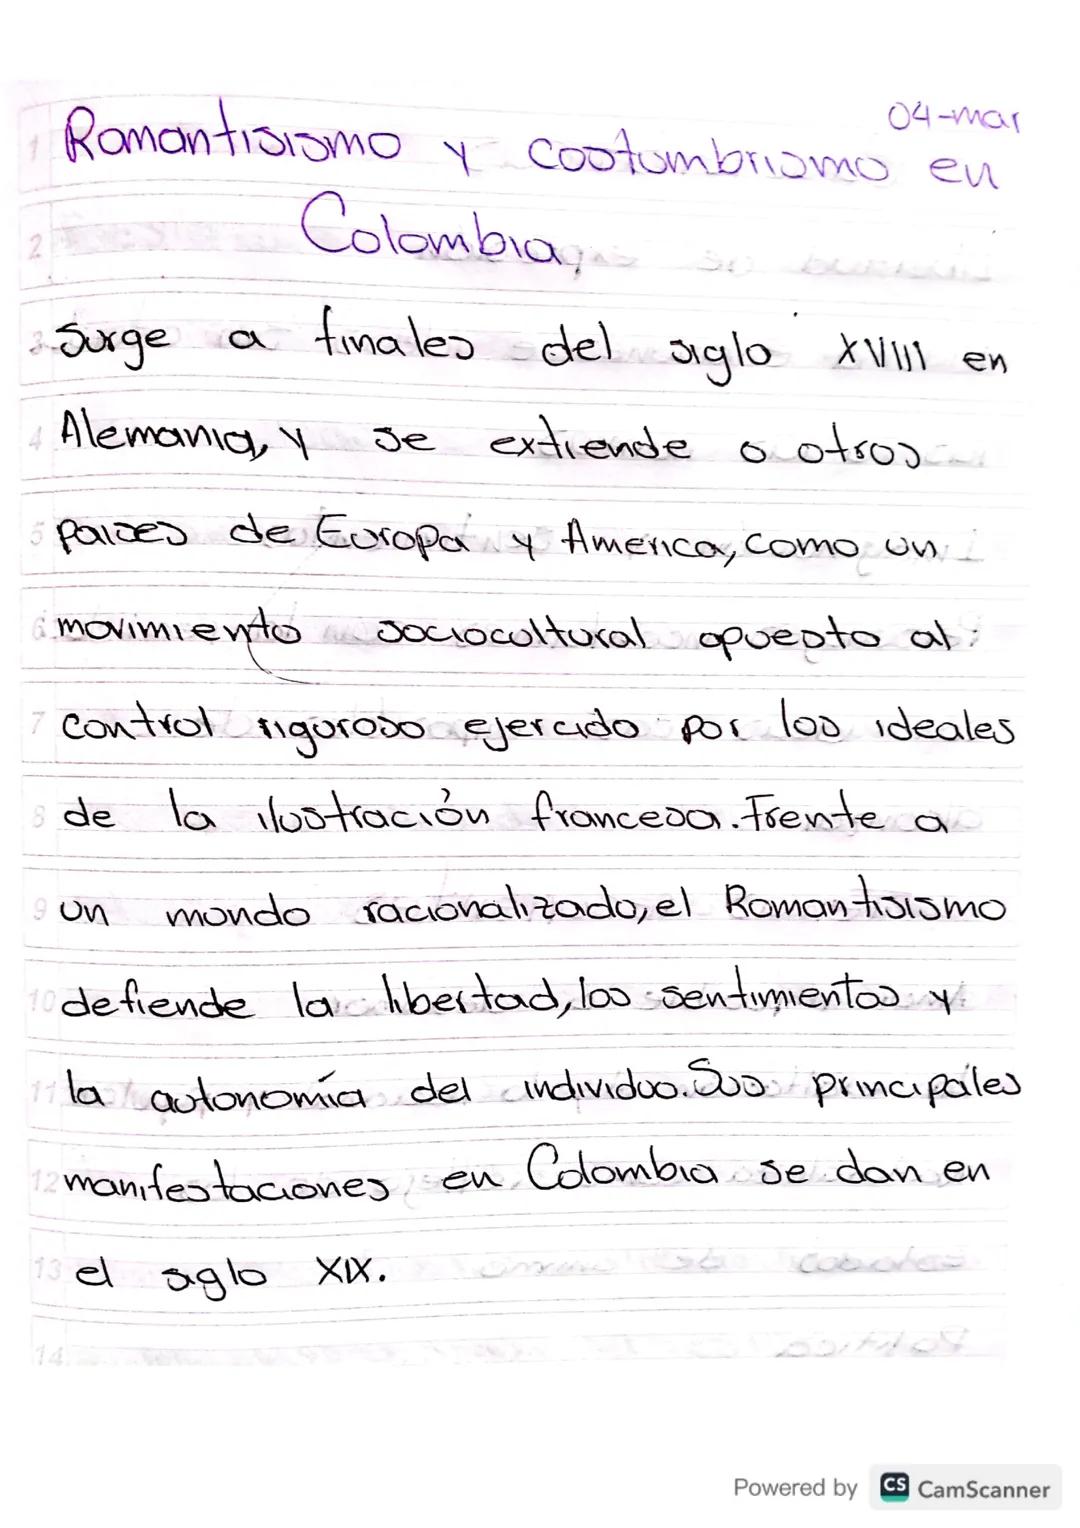 04-mar
Romantisismo y costumbrismo en
Colombia
Surge a finales del siglo XVIII en
Alemania, y se extiende a otros
paises de Europa y America, como un
movimiento sociocultural opuesto al
control riguroso ejercido por los ideales
de la ilustración francesa. Frente a
un mundo racionalizado, el Romantisismo
defiende la libertad, los sentimientos y
la autonomía del individuo. Sus principales
manifestaciones en Colombia se dan en
el siglo XIX.
Powered by CS CamScanner